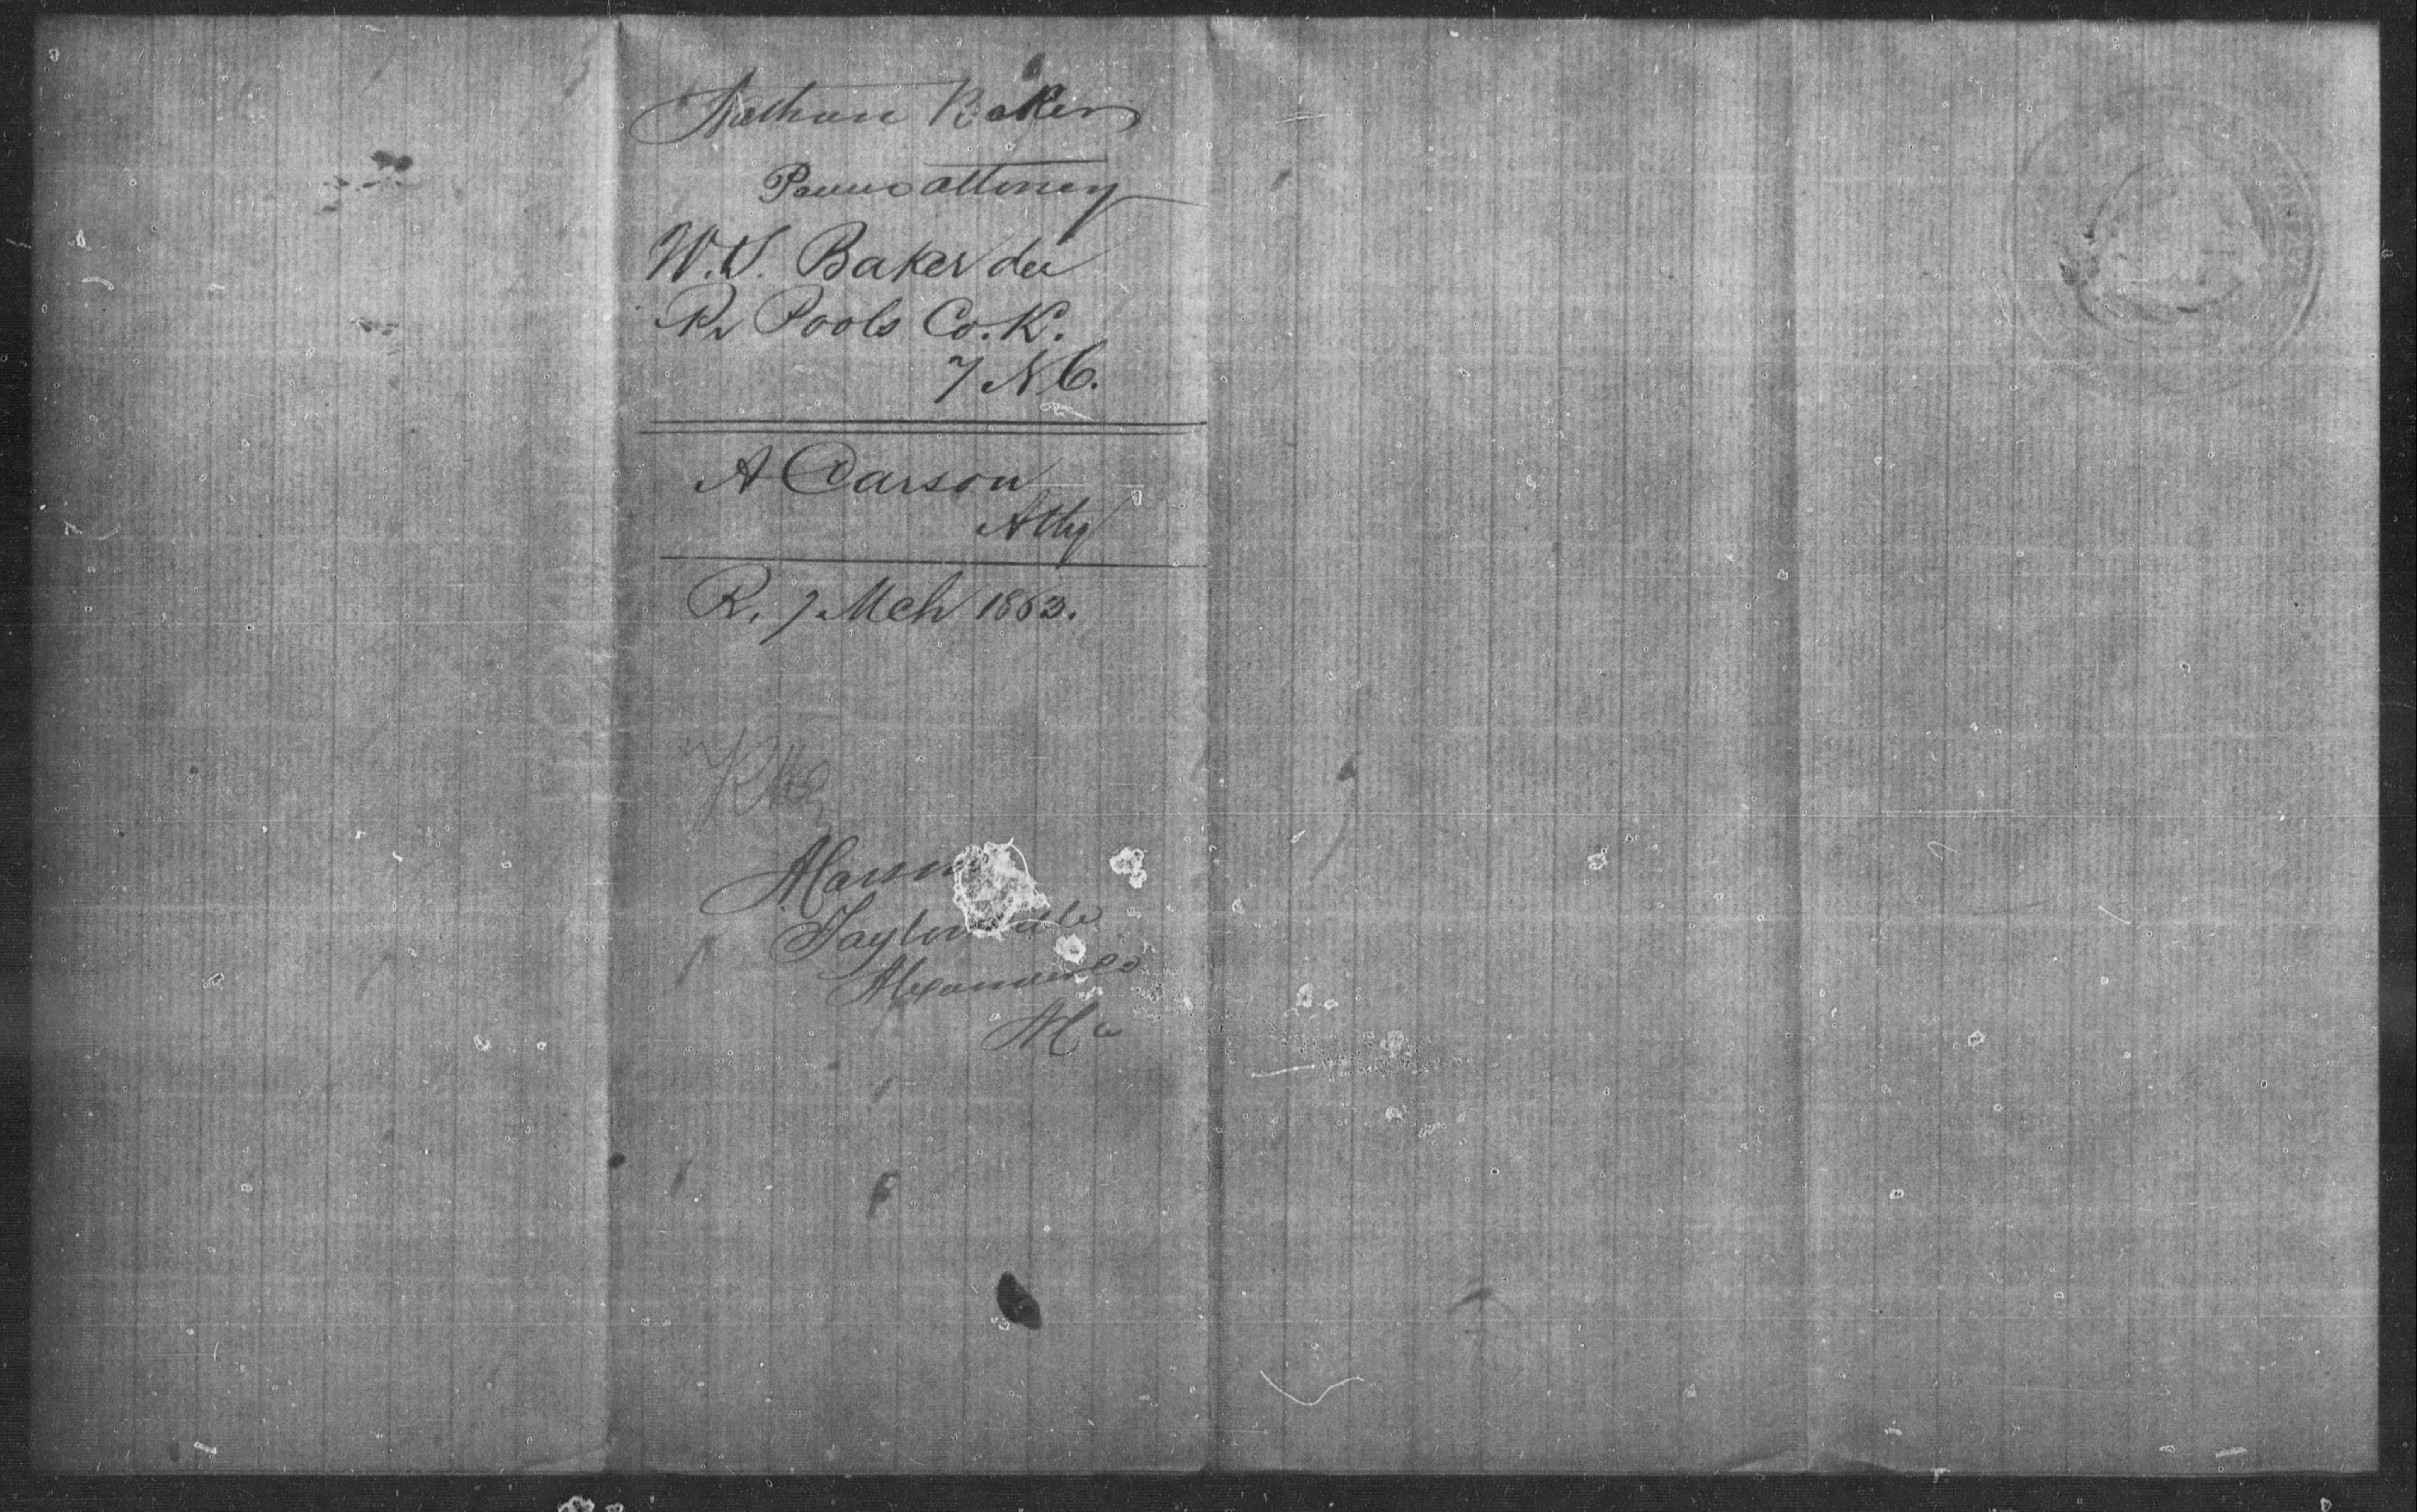 Nathan Baker
Power attorney
W.S. Baker dec
Pr Pools Co. K.
7 N C.
A Carson
Atty
R. 7 Mch 1863.
A Carson
Taylorsville
Alexander Co
N C